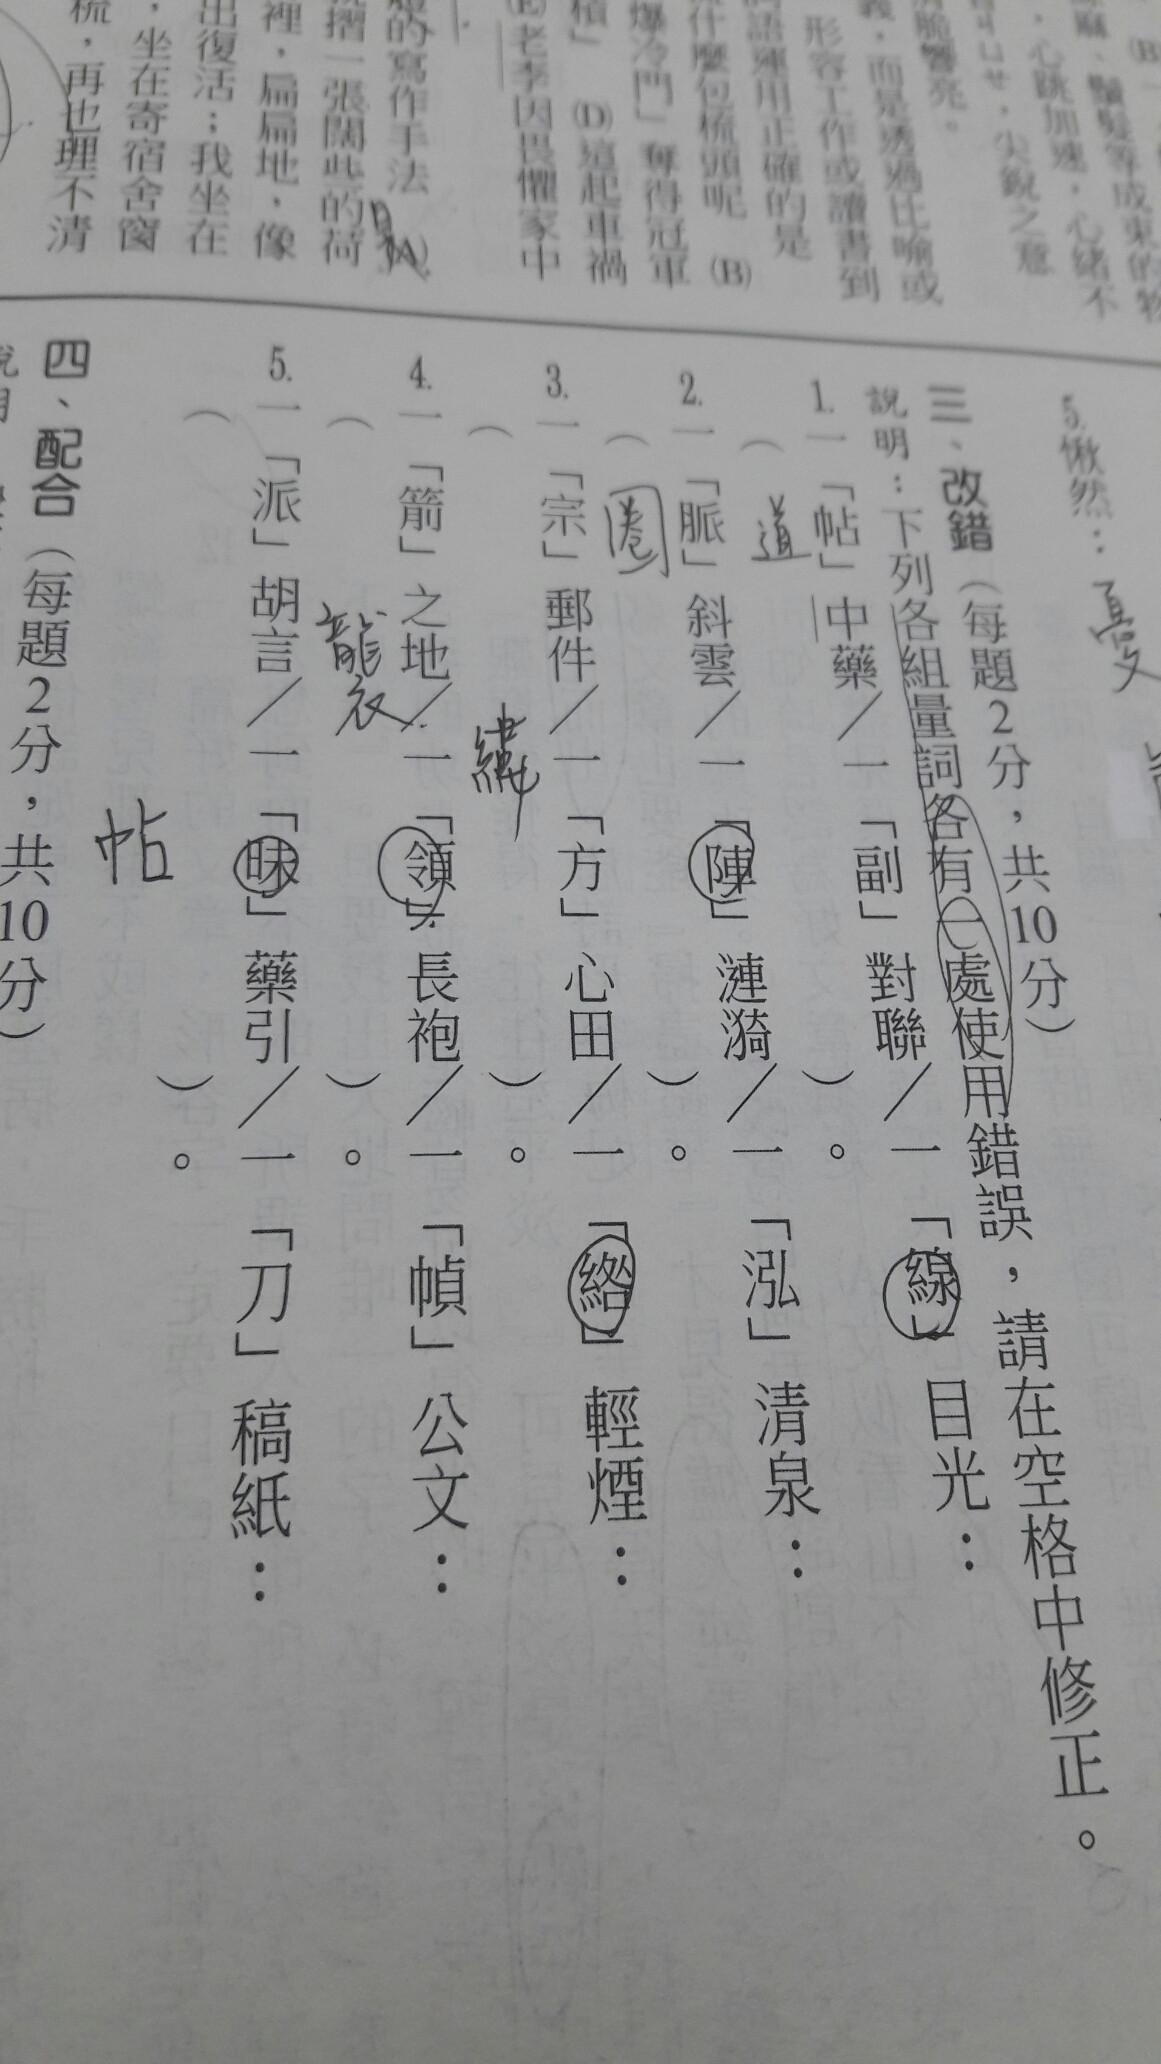 (B)一
麻、鬚髮等成束的物
，心跳加速，心緒不
ㄐㄩㄝ，尖銳之意
清脆響亮。
義，而是透過比喻或
形容工作或讀書到
詞語運用正確的是
什麼包梳頭呢 (B)
爆冷門」奪得冠軍
積」 (D)這起車禍
(E)老李因畏懼家中
的寫作手法
摺一張闊些的荷
裡，扁扁地，像
出復活；我坐在
，坐在寄宿舍窗
梳，再也理不清
5.愀然：
三、改錯（每題2分，共10分）
說明：下列各組量詞各有一處使用錯誤，請在空格中修正。
1.一「帖」中藥／一「副」對聯／一「線」目光：
（道）。
2.一「脈」斜雲／一「陣」漣漪／一「泓」清泉：
（圈）。
3.一「宗」郵件／一「方」心田／一「綹」輕煙：
（縷）。
4.一「箭」之地／一「領」長袍／一「幀」公文：
（襲）。
5.一「派」胡言／一「昧」藥引／一「刀」稿紙：
（帖）。
四、配合（每題2分，共10分）
說明